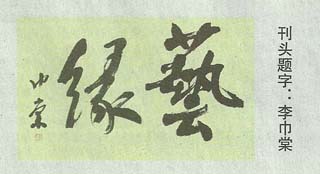 藝緣
巾棠
刊头题字：李巾棠